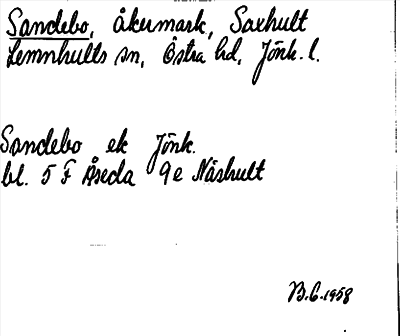 Sandebo, åkermark, Saxhult
Lemnhults sn, Östra hd, Jönk. l.
Sandebo ek Jönk.
bl. 5 F Åseda 9e Näshult
B.C. 1958